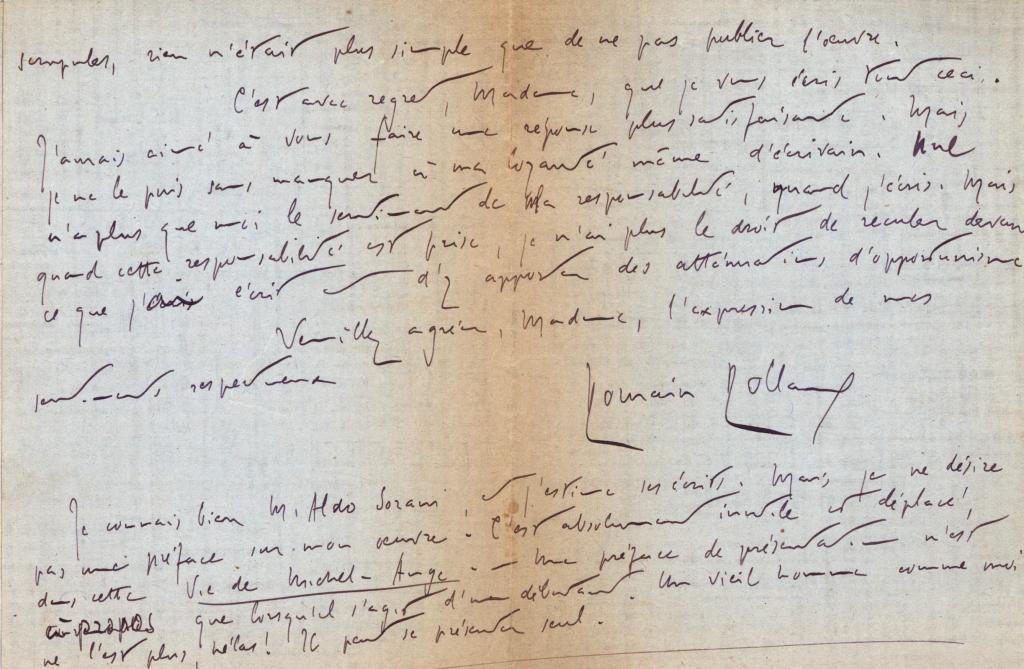 scrupules, rien n'était plus simple que de ne pas publier l'œuvre.
C'est avec regret, Madame, que je vous écris tout ceci.
J'aurais aimé à vous faire une réponse plus satisfaisante. Mais
je ne le puis sans manquer à ma loyauté même d'écrivain. Nul
n'a plus que moi le sentiment de sa responsabilité, quand j'écris. Mais
quand cette responsabilité est prise, je n'ai plus le droit de reculer devant
ce que j'ai écrit et d'y apporter des atténuations d'opportunisme
Veuillez agréer, Madame, l'expression de mes
sentiments respectueux
Romain Rolland
Je connais bien M. Aldo Sorani, et j'estime ses écrits. Mais je ne désire
pas une préface sur mon œuvre. C'est absolument inutile et déplacé,
dans cette Vie de Michel-Ange. — Une préface de présentation n'est
à propos que lorsqu'il s'agit d'un débutant. Un vieil homme comme moi
ne l'est plus, hélas! Il peut se présenter seul.